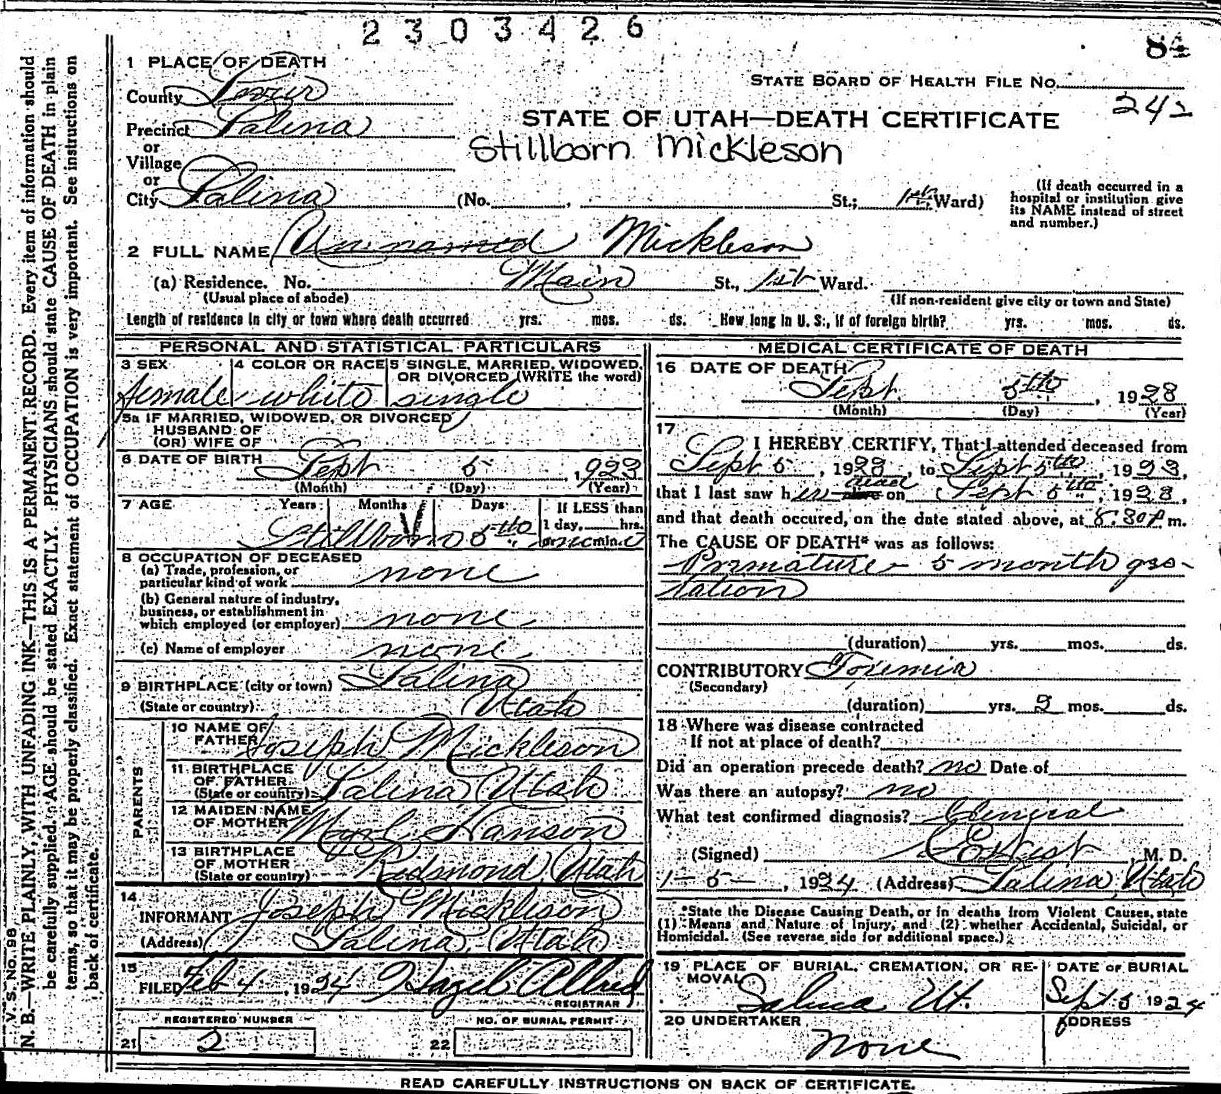 2303426
84
1 PLACE OF DEATH
STATE BOARD OF HEALTH FILE No.
242
County Sevier
STATE OF UTAH—DEATH CERTIFICATE
Precinct Salina
Stillborn Mickleson
or
Village
or
City Salina (No. , St.; 1st Ward)
(If death occurred in a hospital or institution give its NAME instead of street and number.)
2 FULL NAME Unnamed Mickleson
(a) Residence. No. Main St., 1st Ward.
(Usual place of abode) (If non-resident give city or town and State)
Length of residence in city or town where death occurred yrs. mos. ds. How long in U. S., if of foreign birth? yrs. mos. ds.
PERSONAL AND STATISTICAL PARTICULARS
3 SEX 4 COLOR OR RACE 5 SINGLE, MARRIED, WIDOWED, OR DIVORCED (WRITE the word)
female white single
5a IF MARRIED, WIDOWED, OR DIVORCED
HUSBAND OF
(OR) WIFE OF
6 DATE OF BIRTH Sept 5, 1923
(Month) (Day) (Year)
7 AGE Years Months Days If LESS than
1 day, hrs.
Stillborn 5th or min.
8 OCCUPATION OF DECEASED
(a) Trade, profession, or
particular kind of work none
(b) General nature of industry,
business, or establishment in
which employed (or employer) none
(c) Name of employer none
9 BIRTHPLACE (city or town) Salina
(State or country) Utah
PARENTS
10 NAME OF
FATHER Joseph Mickleson
11 BIRTHPLACE
OF FATHER
(State or country) Salina Utah
12 MAIDEN NAME
OF MOTHER Hanson
13 BIRTHPLACE
OF MOTHER
(State or country) Redmond, Utah
14
INFORMANT Joseph Mickleson
(Address) Salina, Utah
15
FILED Feb 4, 1924 Hazel Allred
REGISTRAR
REGISTERED NUMBER NO. OF BURIAL PERMIT
21 2 22
MEDICAL CERTIFICATE OF DEATH
16 DATE OF DEATH
Sept. 5th, 1923
(Month) (Day) (Year)
17
I HEREBY CERTIFY, That I attended deceased from
Sept 5, 1923, to Sept 5th, 1923,
that I last saw her dead alive on Sept 5th, 1923,
and that death occured, on the date stated above, at 8.30 P m.
The CAUSE OF DEATH* was as follows:
Premature - 5 month ges-
tation
(duration) yrs. mos. ds.
CONTRIBUTORY Toxemia
(Secondary)
(duration) yrs. mos. ds.
18 Where was disease contracted
If not at place of death?
Did an operation precede death? no Date of
Was there an autopsy? no
What test confirmed diagnosis? General
(Signed) M. D.
1-5-, 1924 (Address) Salina, Utah
*State the Disease Causing Death, or in deaths from Violent Causes, state
(1) Means and Nature of Injury, and (2) whether Accidental, Suicidal, or
Homicidal. (See reverse side for additional space.)
19 PLACE OF BURIAL, CREMATION, OR RE-
MOVAL Salina Ut.
DATE OF BURIAL
Sept. 5 1924
20 UNDERTAKER ADDRESS
None
READ CAREFULLY INSTRUCTIONS ON BACK OF CERTIFICATE.
V. S. NO. 98
N. B.—WRITE PLAINLY, WITH UNFADING INK—THIS IS A PERMANENT RECORD. Every item of information should
be carefully supplied. AGE should be stated EXACTLY. PHYSICIANS should state CAUSE OF DEATH in plain
terms, so that it may be properly classified. Exact statement of OCCUPATION is very important. See instructions on
back of certificate.